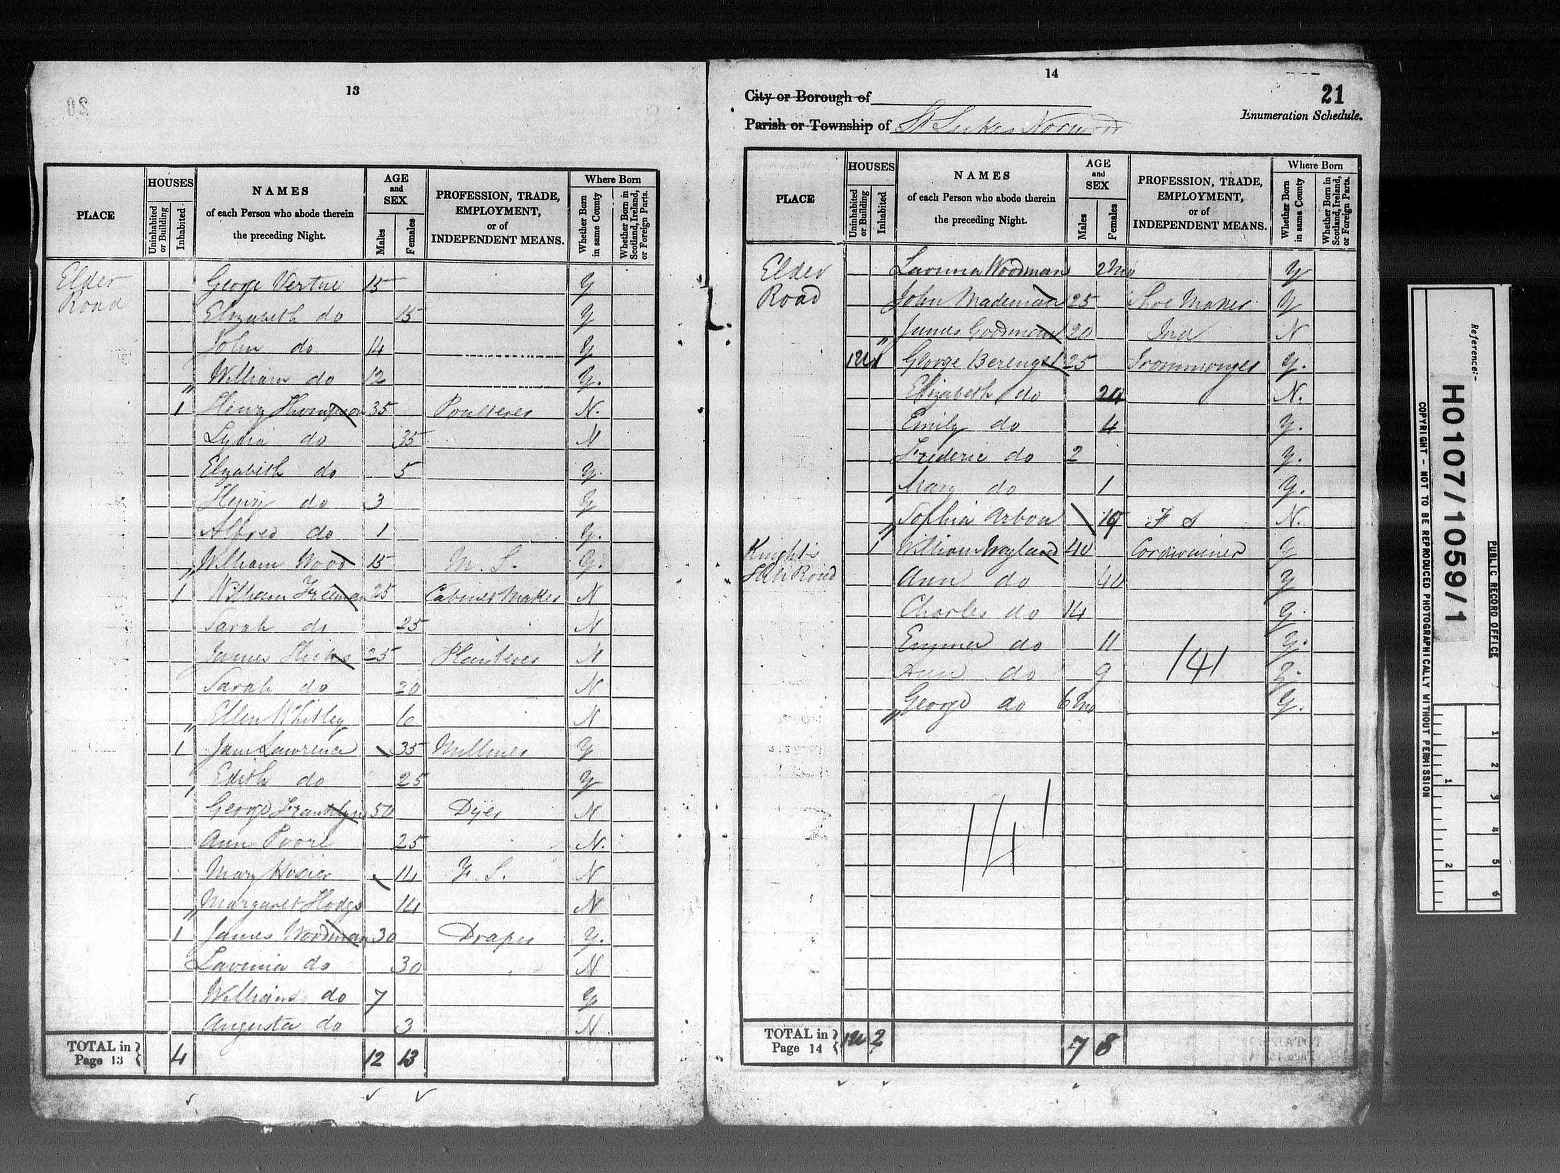 13
20
PLACE
HOUSES
Uninhabited or Building
Inhabited
NAMES
of each Person who abode therein
the preceding Night.
AGE and SEX
Males
Females
PROFESSION, TRADE,
EMPLOYMENT,
or of
INDEPENDENT MEANS.
Where Born
Whether Born in same County
Whether Born in Scotland, Ireland, or Foreign Parts.
Elder Road George Vertue 15 Y
Elizabeth do 15 Y
John do 14 Y
William do 12 Y.
1 Henry Thompson 35 Poulterer N.
Lydia do 35 N
Elizabeth do 5 Y.
Henry do 3 Y
Alfred do 1 Y.
William Wood 15 M. S. Y.
1 William Freeman 25 Cabinet Maker N
Sarah do 25 N
James Hicks 25 N
Sarah do 20 N
Ellen Whitley 6 N
1 Jane Lawrence 35 Milliner Y
Edith do 25 Y
George Franklyn 50 Dyer N
Ann Poore 25 N.
Mary Hosier 14 F. S. N
Margaret Hodge 14 N
1 James Woodman 30 Draper Y.
Lavinia do 30 N
William do 7 Y
Augusta do 3 N.
TOTAL in Page 13 4 12 13
14
21
City or Borough of
Enumeration Schedule.
Parish or Township of St Lukes Norwood
PLACE
HOUSES
Uninhabited or Building
Inhabited
NAMES
of each Person who abode therein
the preceding Night.
AGE and SEX
Males
Females
PROFESSION, TRADE,
EMPLOYMENT,
or of
INDEPENDENT MEANS.
Where Born
Whether Born in same County
Whether Born in Scotland, Ireland, or Foreign Parts.
Elder Road Lavinia Woodman 2 Mo Y
John 25 Shoe Maker Y
James Goodman 20 Ind N
George 25 Ironmonger Y.
Elizabeth do N.
Emily do 4 Y.
Frederic do 2 Y.
Mary do 1 Y.
Sophia F S N.
Knight's Hill Road 1 William Wayland 40 Cordwainer Y
Ann do 40 Y
Charles do 14 Y.
Emma do 11 Y.
Ann do 9 Y.
George do 6 Mo Y.
141
141
TOTAL in Page 14 2 7 8
Reference:-
HO107/1059/1
PUBLIC RECORD OFFICE
COPYRIGHT - NOT TO BE REPRODUCED PHOTOGRAPHICALLY WITHOUT PERMISSION
1
2
3
4
5
6
1
2